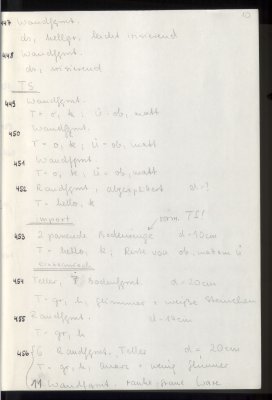 447 Wandfgmt.
ds, hellgr, leicht irisierend
448 Wandfgmt.
ds, irisierend
TS
449 Wandfgmt.
T - o, k; Ü - ob, matt
450 Wandfgmt.
T - o, k; Ü - ob, matt
451 Wandfgmt.
T - o, k; Ü - ob, matt
452 Randfgmt, abgesplittert d = ?
T - hello, k
import
röm. TS!
453 2 passende Bodenfgmte d = 10cm
T - hello, k; Reste von ob, matten Ü
einheimisch
454 Teller, Bodenfgmt. d = 20cm
T - gr, h, Glimmer + weiße Steinchen
455 Randfgmt. d = 14cm
T - gr, h
456 6 Randfgmt. Teller d = 20cm
T - gr, h, Quarz + wenig Glimmer
11 Wandfgmt. rauhe, graue Ware